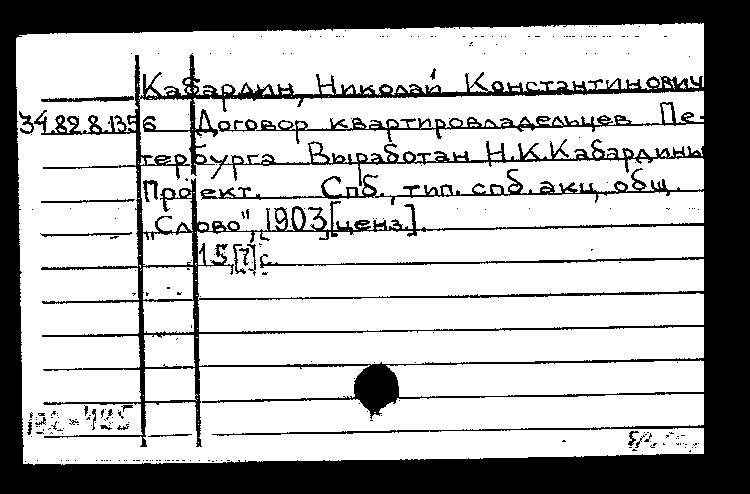 Кабардин, Николай Константинович
34.82.8.1356 Договор квартировладельцев Пе-
тербурга Выработан Н.К.Кабардины
Проект. Спб., тип. спб. акц. общ.
„Слово", 1903[ценз.].
15,[1]с.
192-495